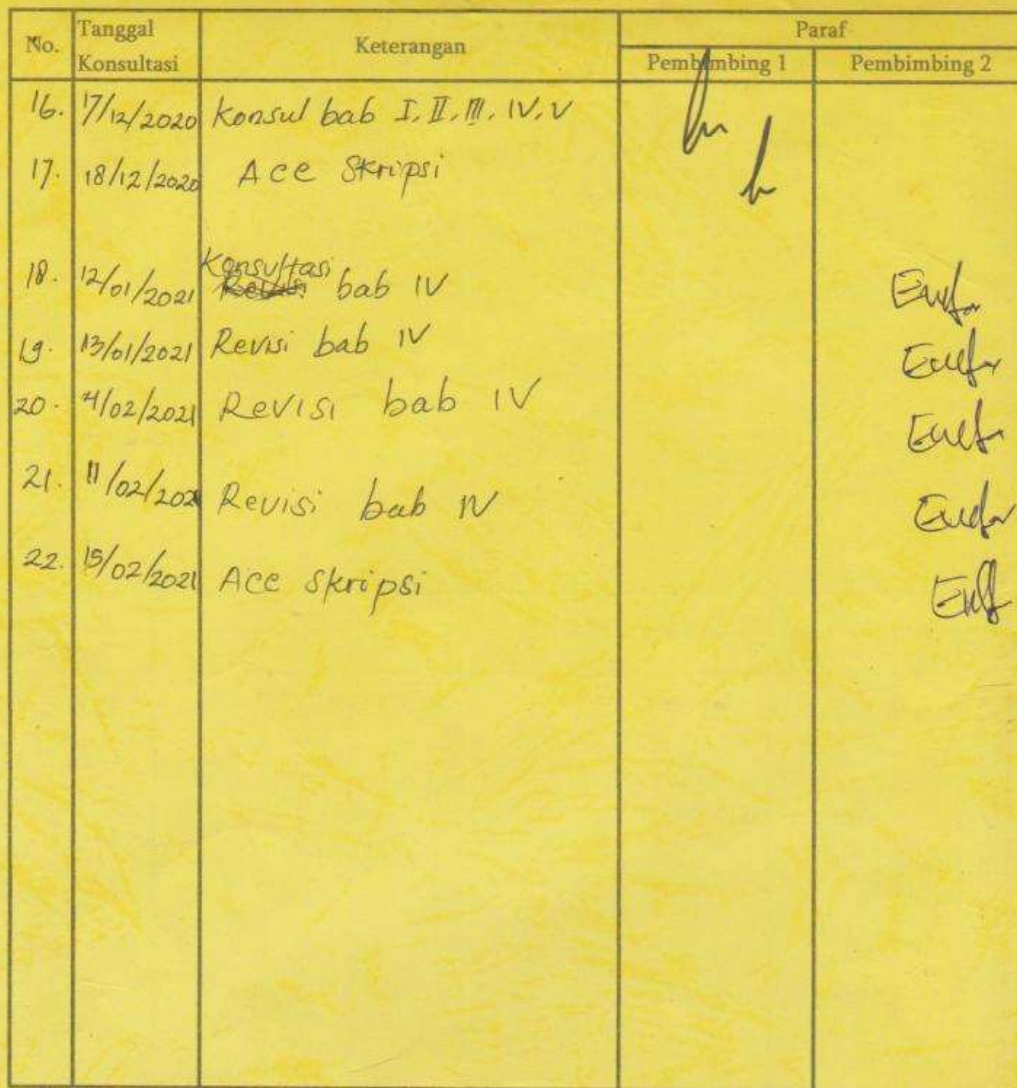 No. Tanggal Konsultasi Keterangan Paraf
Pembimbing 1 Pembimbing 2
16. 17/12/2020 Konsul bab I, II, III, IV, V
17. 18/12/2020 Acc Skripsi
18. 12/01/2021 Konsultasi bab IV
19. 13/01/2021 Revisi bab IV
20. 4/02/2021 Revisi bab IV
21. 11/02/202 Revisi bab IV
22. 15/02/2021 Acc skripsi